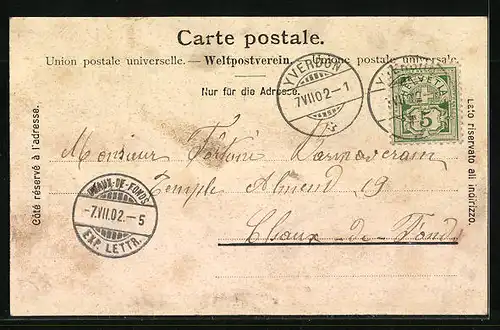 Carte postale.
Union postale universelle. — Weltpostverein. — Unione postale universale.
Nur für die Adresse.
Côté réservé à l'adresse.
Lato riservato all indirizzo.
YVERDON
7.VII.02.-1
HELVETIA
5
Monsieur Fortuné
Temple Almend 19
Chaux-de-Fond
CHAUX-DE-FONDS
-7.VII.02.-5
EXP. LETTR.